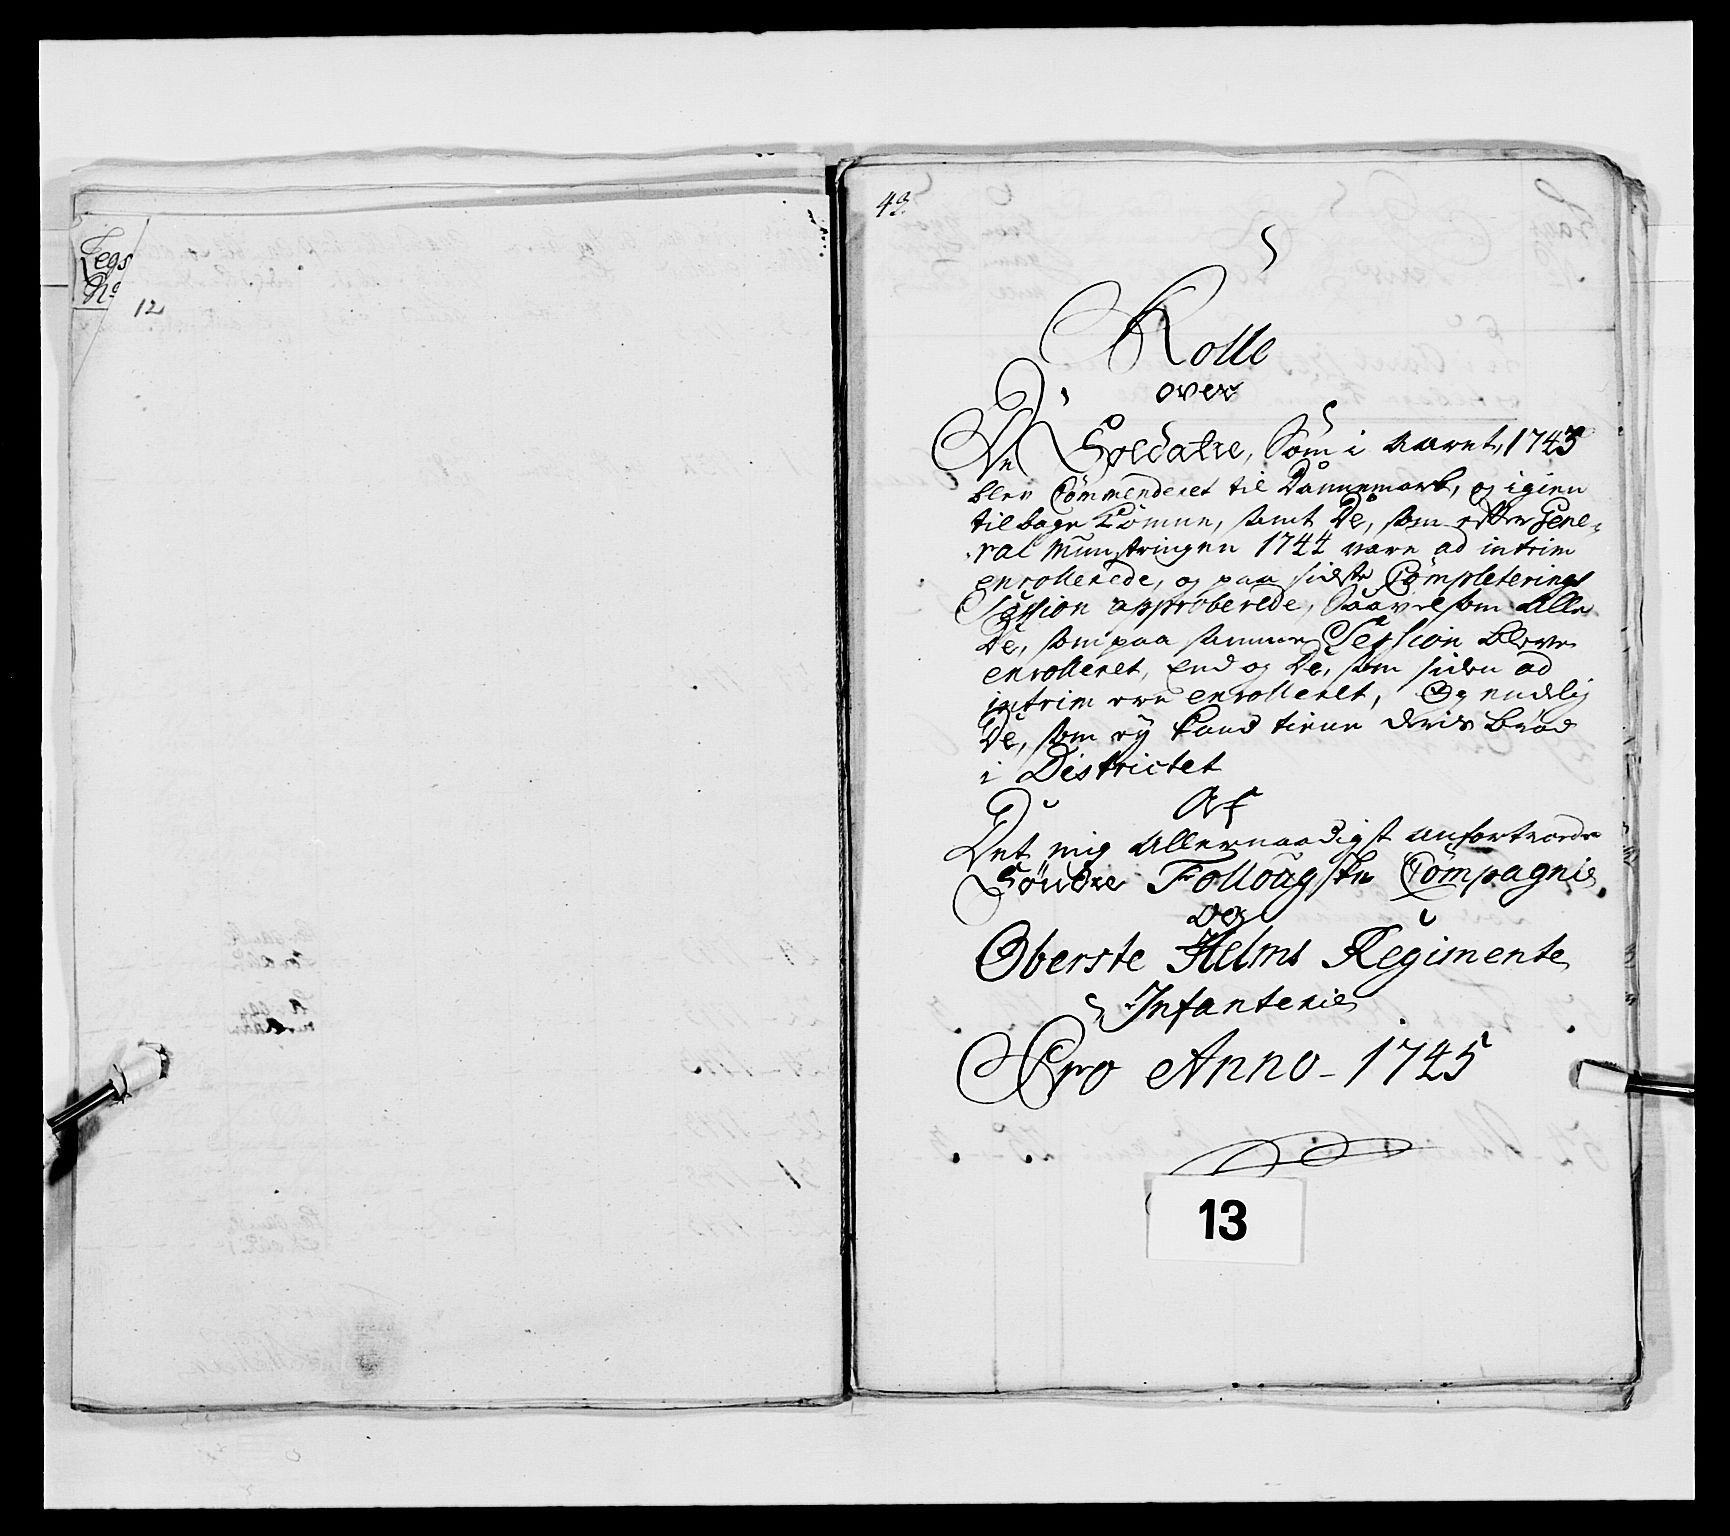 Legs
No
12
49.
Rolle
over
De Soldater, Som i Aaret, 1743
blev Commenderet til Dannemark, og igien
tilbage Komne, samt De, som efter Gene-
ral Munstringen 1744 vare ad intrim
enrollerede, og paa sidste Completerings
Session approberede, Saavelsom Alle
De, som paa samme Session bleve
enrolleret, End og De, som siden ad
intrim ere enrolleret, Og endelig
De, som ey kand tiene deris brød
i Districtet
Af
Det mig Allernaadigst anfortroede
Söndre Follougske Compagnie
og
Oberste Helms Regimente
Infanterie
Pro Anno - 1745
13